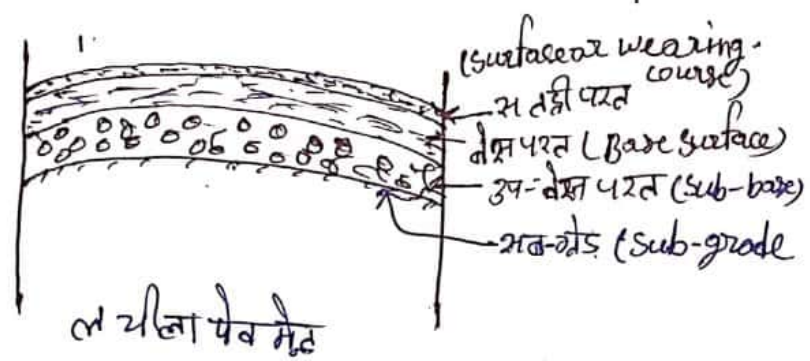 (surface or wearing course)
सतही परत
बेस परत (Base surface)
उप-बेस परत (sub-base)
सब-ग्रेड (sub-grade
लचीला पेवमेंट